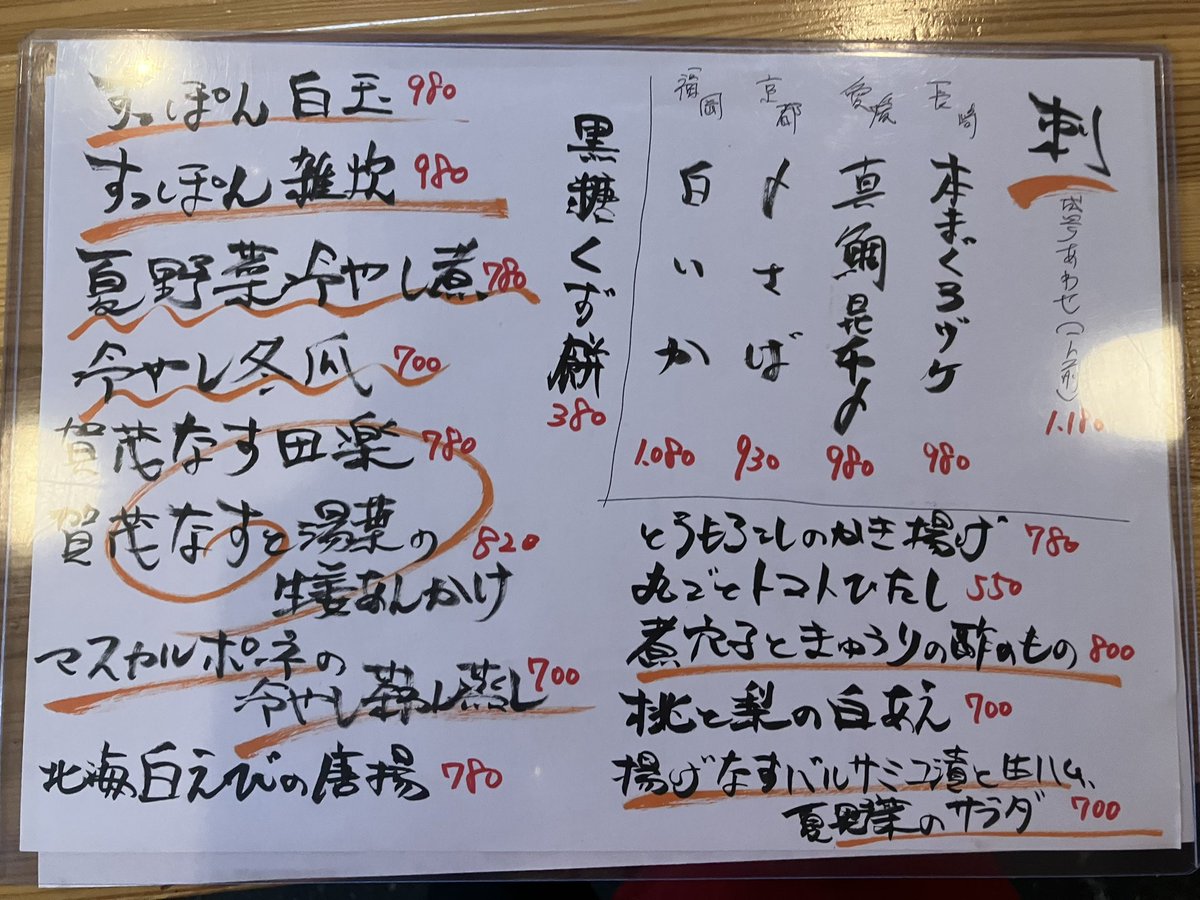 すっぽん白玉 980
すっぽん雑炊 980
夏野菜冷やし煮 780
冷やし冬瓜 700
賀茂なす田楽 780
賀茂なすと湯葉の
生姜あんかけ 820
マスカルポーネの
冷やし 蒸し 700
北海白えびの唐揚 780
黒糖くず餅 380
刺
あわせ(一人前) 1.180
長崎 本まぐろヅケ 980
愛媛 真鯛昆布〆 980
京都 〆さば 930
福岡 白いか 1.080
とうもろこしのかき揚げ 780
丸ごとトマトひたし 550
煮穴子ときゅうりの酢のもの 800
桃と梨の白あえ 700
揚げなすバルサミコ漬と生ハム、
夏野菜のサラダ 700